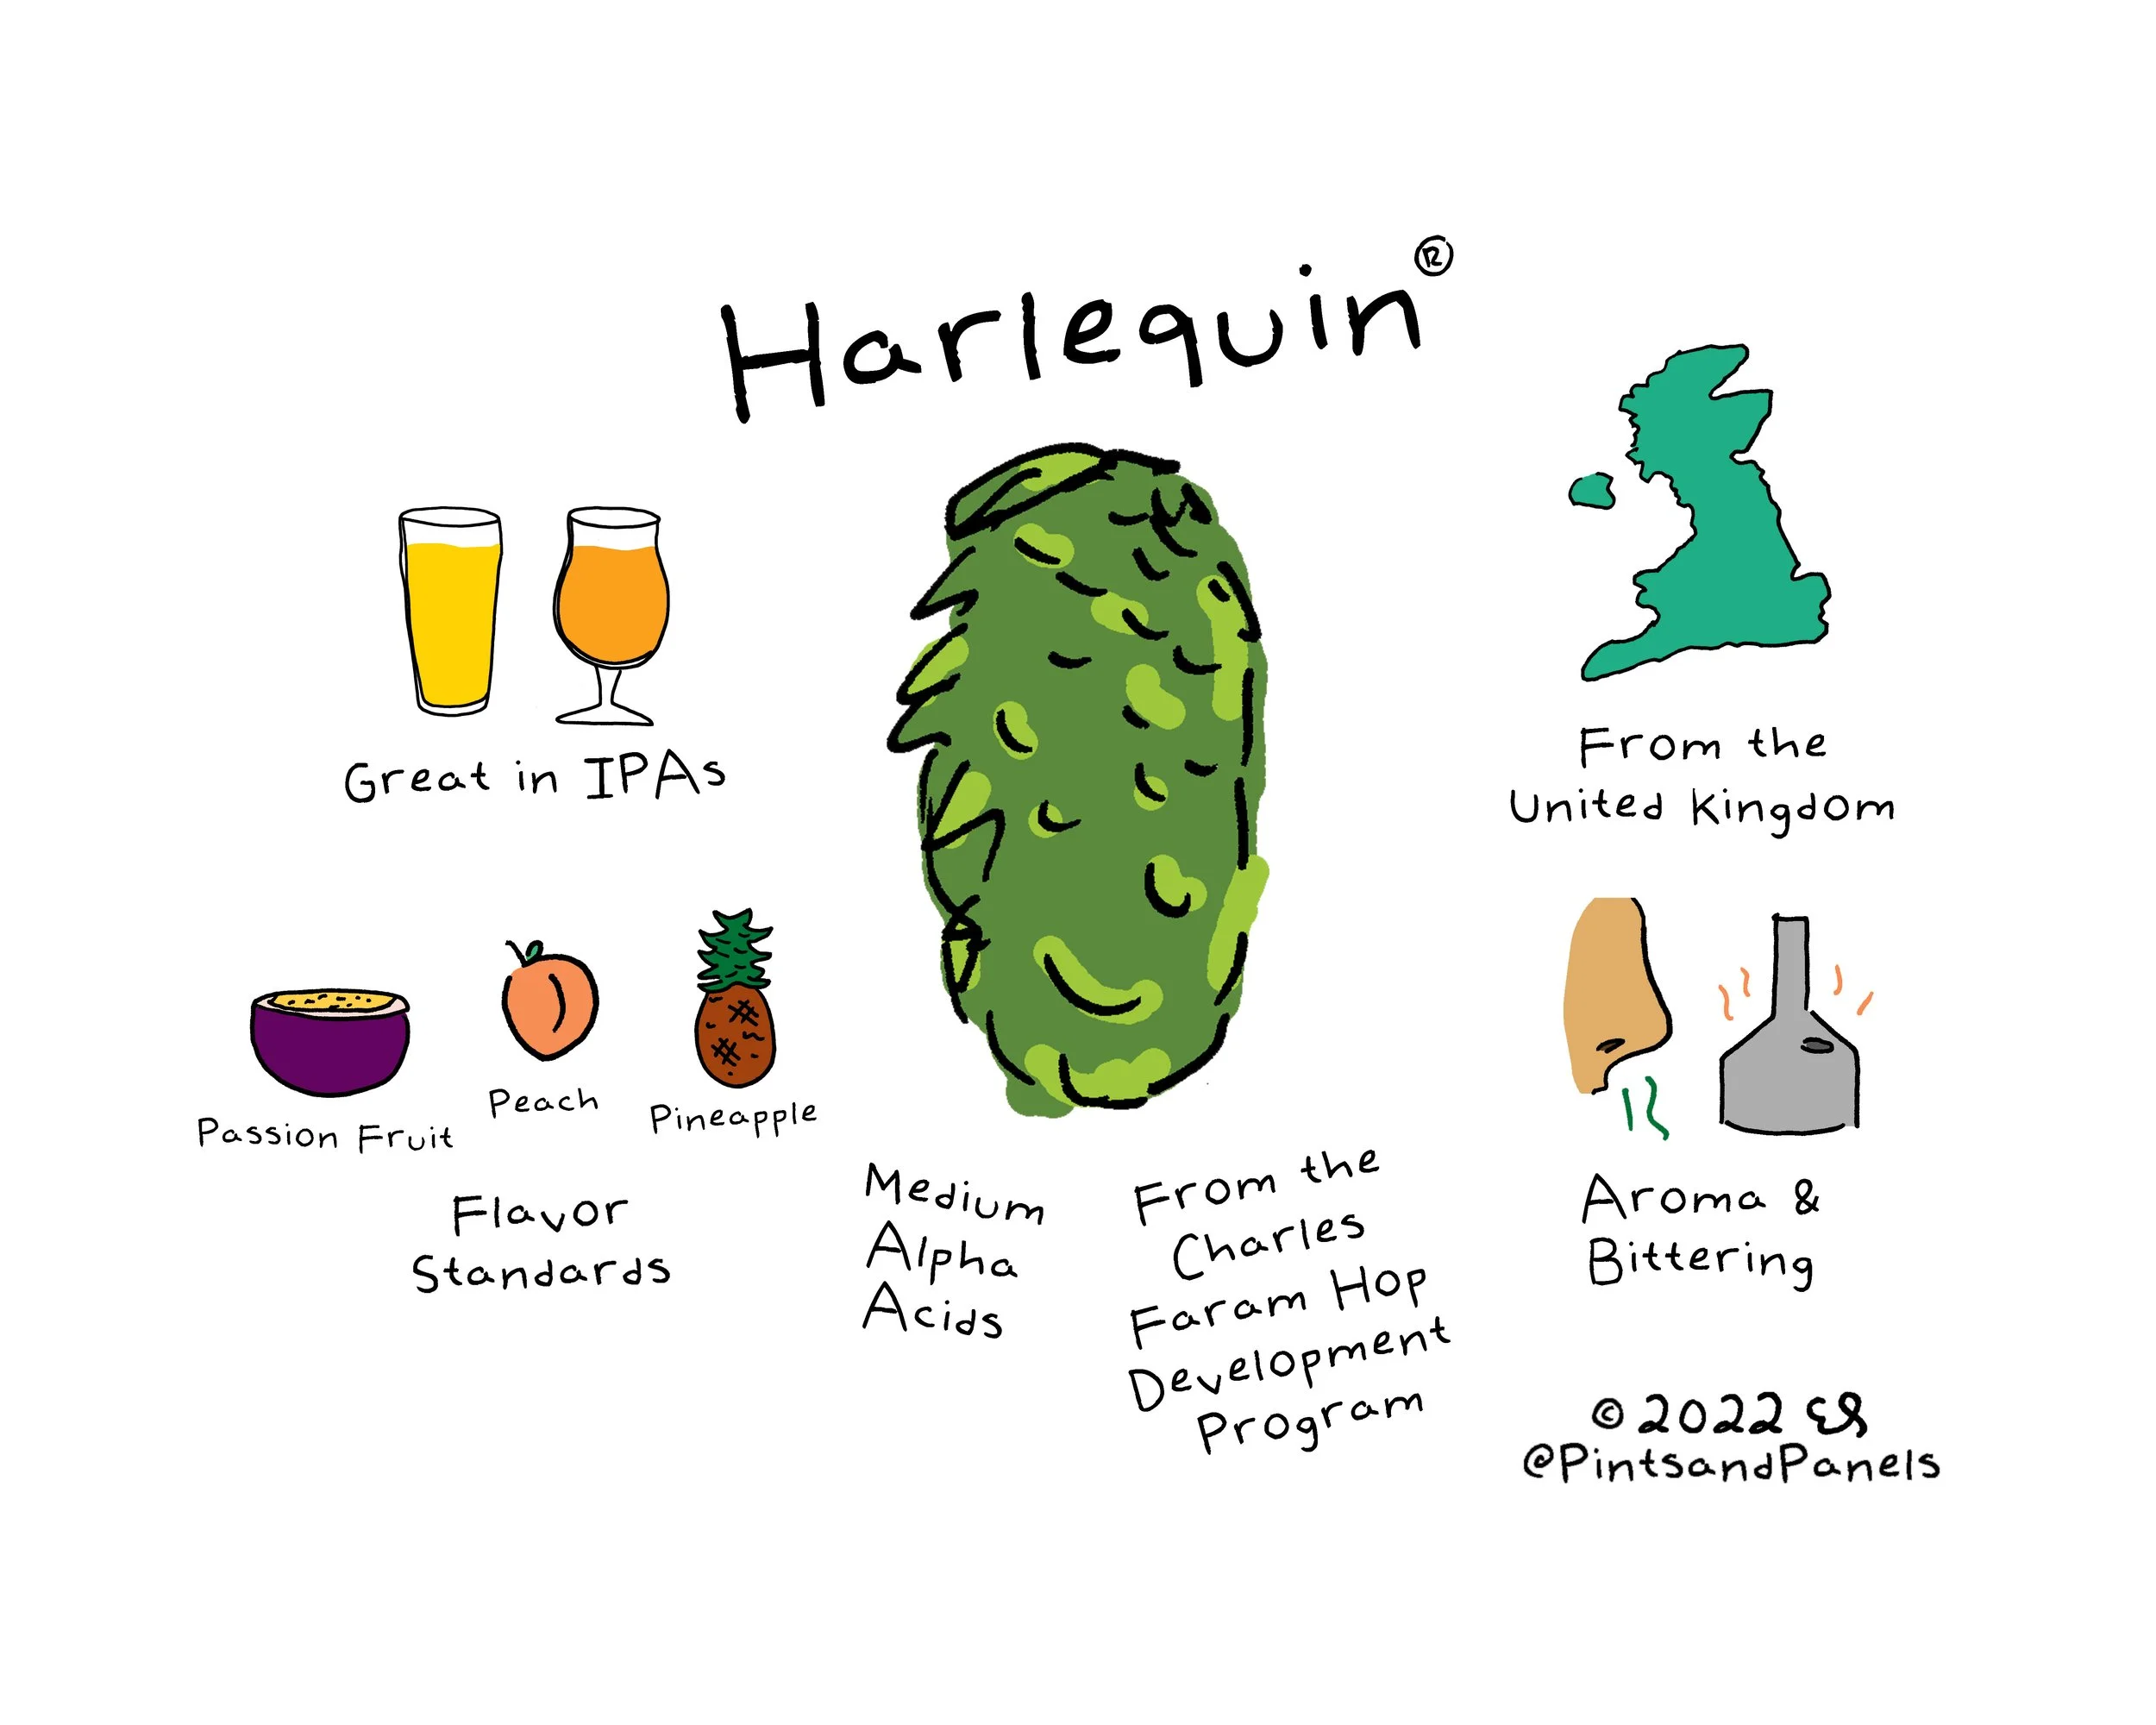 Harlequin®
Great in IPAs
From the
United Kingdom
Passion Fruit
Peach
Pineapple
Flavor
Standards
Medium
Alpha
Acids
From the
Charles
Faram Hop
Development
Program
Aroma &
Bittering
© 2022
@PintsandPanels